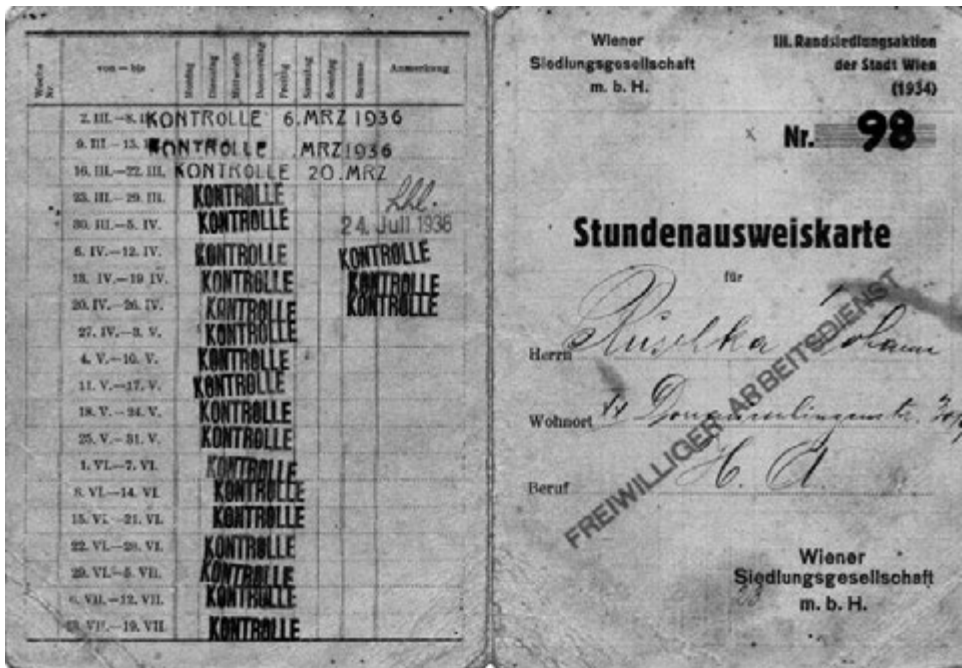 Woche Nr. von — bis Montag Dienstag Mittwoch Donnerstag Freitag Samstag Sonntag Summe Anmerkung
2. III.—8. KONTROLLE 6. MRZ 1936
9. III.—15. KONTROLLE MRZ 1936
16. III.—22. III. KONTROLLE 20. MRZ
23. III.—29. III. KONTROLLE
30. III.—5. IV. KONTROLLE 24. Juli 1936
6. IV.—12. IV. KONTROLLE KONTROLLE
13. IV.—19 IV. KONTROLLE KONTROLLE
20. IV.—26. IV. KONTROLLE KONTROLLE
27. IV.—3. V. KONTROLLE
4. V.—10. V. KONTROLLE
11. V.—17. V. KONTROLLE
18. V.—24. V. KONTROLLE
25. V.—31. V. KONTROLLE
1. VI.—7. VI. KONTROLLE
8. VI.—14. VI. KONTROLLE
15. VI.—21. VI. KONTROLLE
22. VI.—28. VI. KONTROLLE
29. VI.—5. VII. KONTROLLE
6. VII.—12. VII. KONTROLLE
13. VII.—19. VII KONTROLLE
Wiener
Siedlungsgesellschaft
m. b. H.
III. Randsiedlungsaktion
der Stadt Wien
(1934)
Nr. 98
Stundenausweiskarte
für
Herrn Ruschka Johann
Wohnort
Beruf H. A.
FREIWILLIGER ARBEITSDIENST
Wiener
Siedlungsgesellschaft
m. b. H.